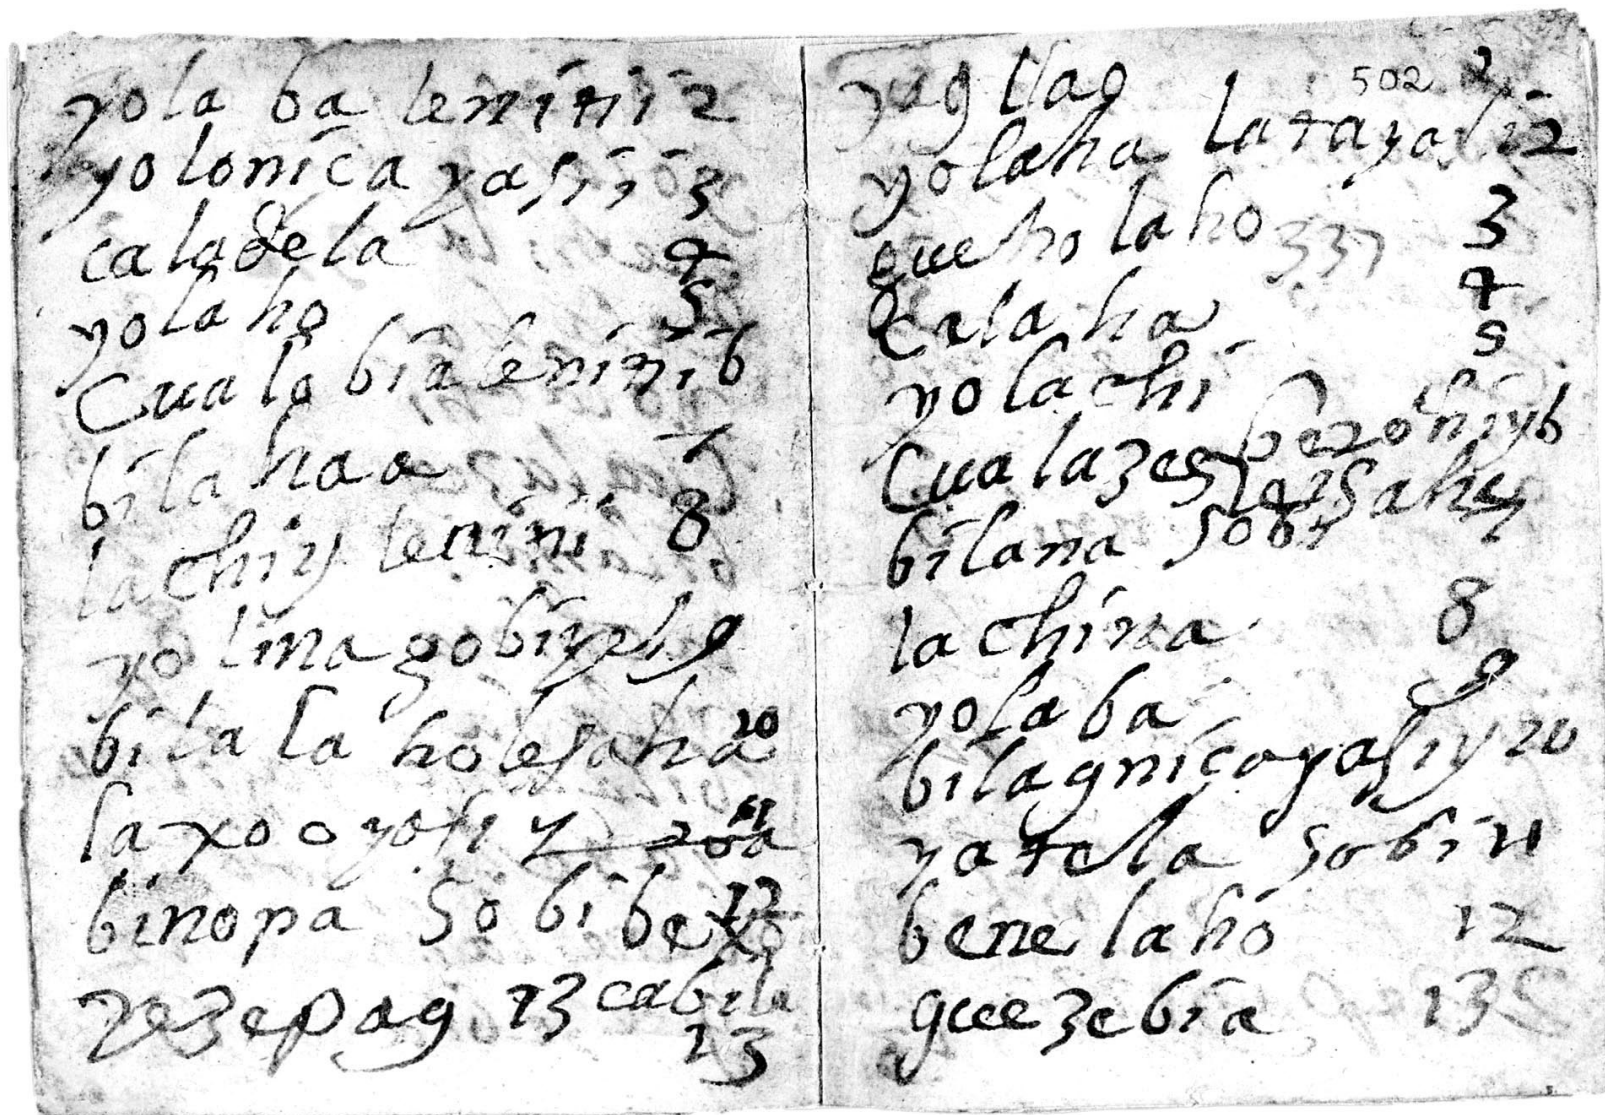 yola ba lenini 2
yolonica yasii 3
caladela 4
yolaho 5
Cualo bialenini 6
bilahaa 7
lachiy lenini 8
yolina gobiyel 9
bila la holesaha 10
laxoo yosiy 11
binopa sobibexo 12
yezepag 13 cabila
13
yag llag 502 2
yolaha latayali 2
queholaho 337 3
Calaha 4
yolachi 5
Cualazes
bilana sobi 7
lachina 8
yolaba 9
bilagnicayasiy 10
yatela sobi 11
bene laho 12
quezebia 13